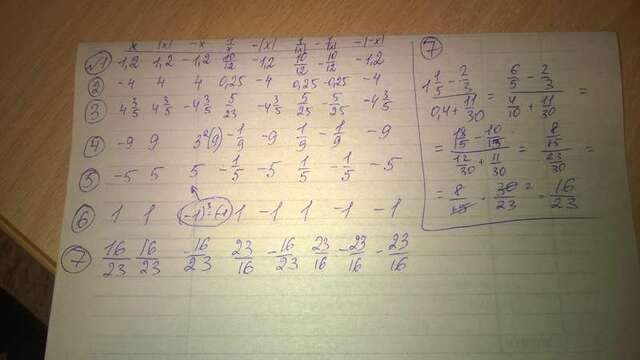 x |x| -x 1/x -|x| 1/|x| -1/|x| -|-x|
№1 1,2 1,2 -1,2 10/12 -1,2 10/12 -10/12 -1,2
2 -4 4 4 0,25 -4 0,25 -0,25 -4
3 4 3/5 4 3/5 -4 3/5 5/23 -4 3/5 5/25 -5/25 -4 3/5
4 -9 9 3²(9) -1/9 -9 1/9 -1/9 -9
5 -5 5 5 -1/5 -5 1/5 -1/5 -5
6 1 1 1 -1 1 -1 -1
7 16/23 16/23 -16/23 23/16 -16/23 23/16 -23/16 -23/16
7
(1 1/5 - 2/3)/(0,4 + 11/30) = (6/5 - 2/3)/(4/10 + 11/30) =
= (18/15 - 10/15)/(12/30 + 11/30) = (8/15)/(23/30) =
= 8/15 · 30²/23 = 16/23